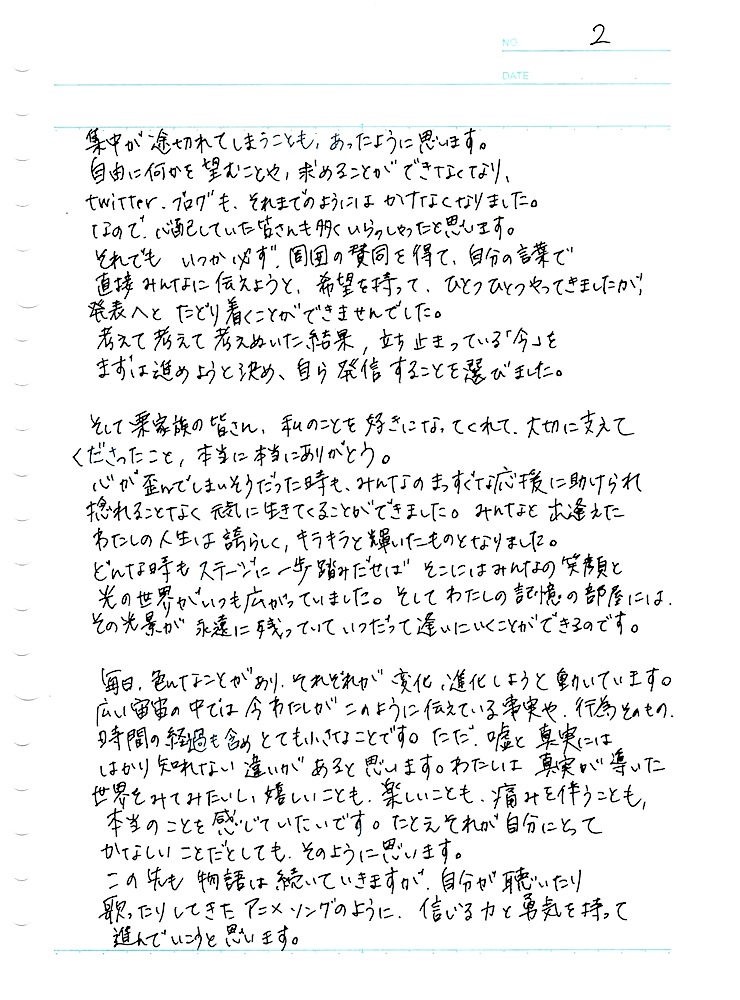 NO. 2
DATE
集中が途切れてしまうことも、あったように思います。
自由に何かを望むことや、求めることができなくなり、
twitter、ブログも、それまでのようにはかけなくなりました。
なので、心配していた皆さんも多くいらっしゃったと思います。
それでも いつか必ず、周囲の賛同を得て、自分の言葉で
直接みんなに伝えようと、希望を持って、ひとつひとつやってきましたが、
発表へと たどり着くことができませんでした。
考えて考えて考えぬいた結果、立ち止まっている「今」を
まずは進めようと決め、自ら発信することを選びました。
そして栗家族の皆さん、私のことを好きになってくれて、大切に支えて
くださったこと、本当に本当にありがとう。
心が歪んでしまいそうだった時も、みんなのまっすぐな応援に助けられ
捻れることなく元気に生きてくることができました。みんなと出逢えた
わたしの人生は誇らしく、キラキラと輝いたものとなりました。
どんな時もステージに一歩踏みだせば そこにはみんなの笑顔と
光の世界がいつも広がっていました。そしてわたしの記憶の部屋には、
その光景が永遠に残っていていつだって逢いにいくことができるのです。
毎日、色んなことがあり、それぞれが変化、進化しようと動いています。
広い宇宙の中では今わたしがこのように伝えている事実や、行為そのもの、
時間の経過も含めとても小さなことです。ただ、嘘と真実には
はかり知れない違いがあると思います。わたしは 真実が導いた
世界をみてみたいし、嬉しいことも、楽しいことも、痛みを伴うことも、
本当のことを感じていたいです。たとえそれが自分にとって
かなしいことだとしても、そのように思います。
この先も 物語は続いていきますが、自分が聴いたり
歌ったりしてきたアニメソングのように、信じる力と勇気を持って
進んでいこうと思います。